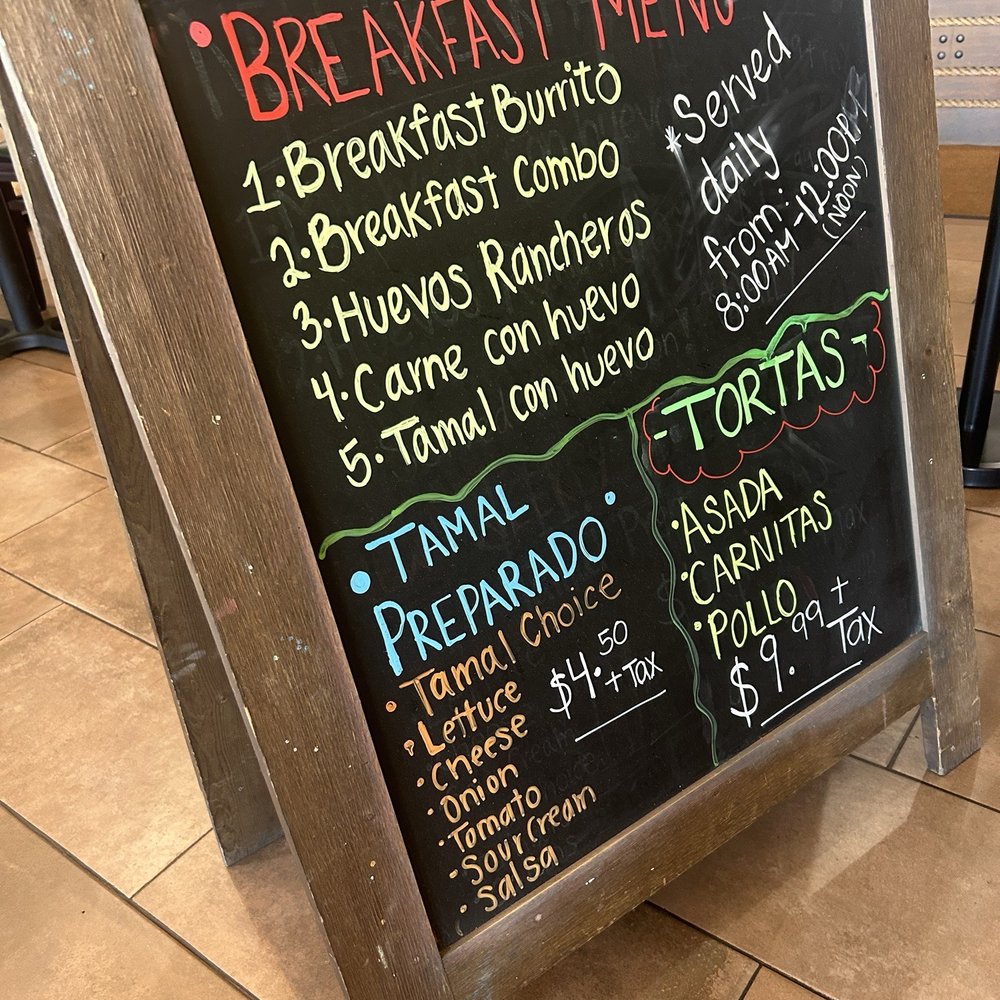 • BREAKFAST MENU
1. Breakfast Burrito
2. Breakfast Combo
3. Huevos Rancheros
4. Carne con huevo
5. Tamal con huevo
*Served
daily
from:
8:00AM-12:00PM
(NOON)
• TAMAL
PREPARADO •
• Tamal Choice
• Lettuce
• Cheese
• Onion
• Tomato
• Sour Cream
• Salsa
$4.50
+TAX
-TORTAS-
• ASADA
• CARNITAS
• POLLO
$9.99 +
Tax